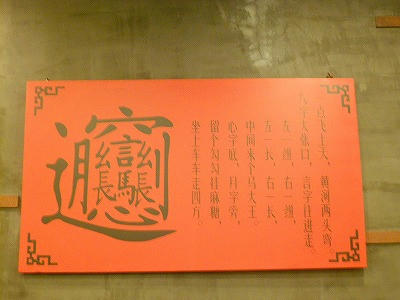 𰻞
一点飞上天，黄河两头弯。
八字大张口，言字往进走。
左一扭，右一扭，
左一长，右一长，
中间夹个马大王。
心字底，月字旁，
留个勾勾挂麻糖，
坐上车车走四方。